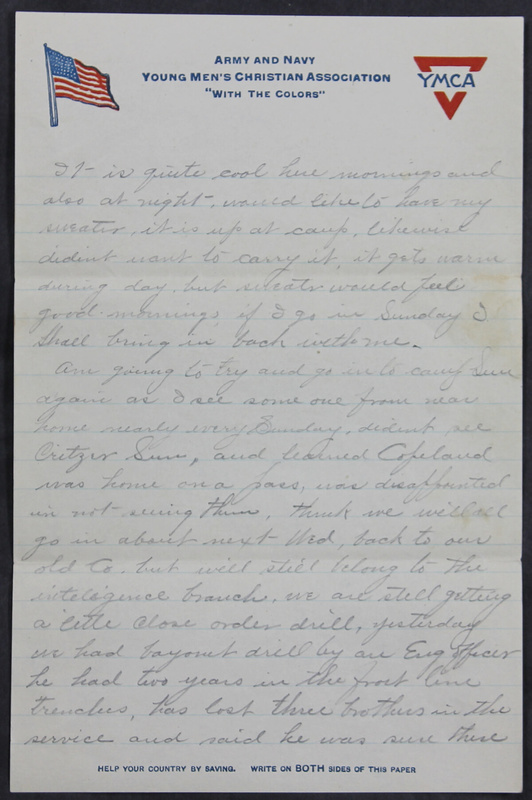 ARMY AND NAVY
YOUNG MEN'S CHRISTIAN ASSOCIATION
"WITH THE COLORS"
YMCA
It is quite cool here mornings and
also at night, would like to have my
sweater, it is up at camp, likewise
didint want to carry it, it gets warm
during day, but sweatr would feel
good mornings, if I go in Sunday I
shall bring in back with me.
Am going to try and go in to camp Sun
again as I see some one from near
home nearly every Sunday, dident see
Critzer Sun, and learned Copeland
was home on a pass, was disappointed
in not seeing them, think we will all
go in about next Wed, back to our
old Co. but will still belong to the
inteligence branch, we are still getting
a little close order drill, yesterday
we had bayonet drill by an Eng officer
he had two years in the front line
trenches, has lost three brothers in the
service and said he was sure these
HELP YOUR COUNTRY BY SAVING. WRITE ON BOTH SIDES OF THIS PAPER